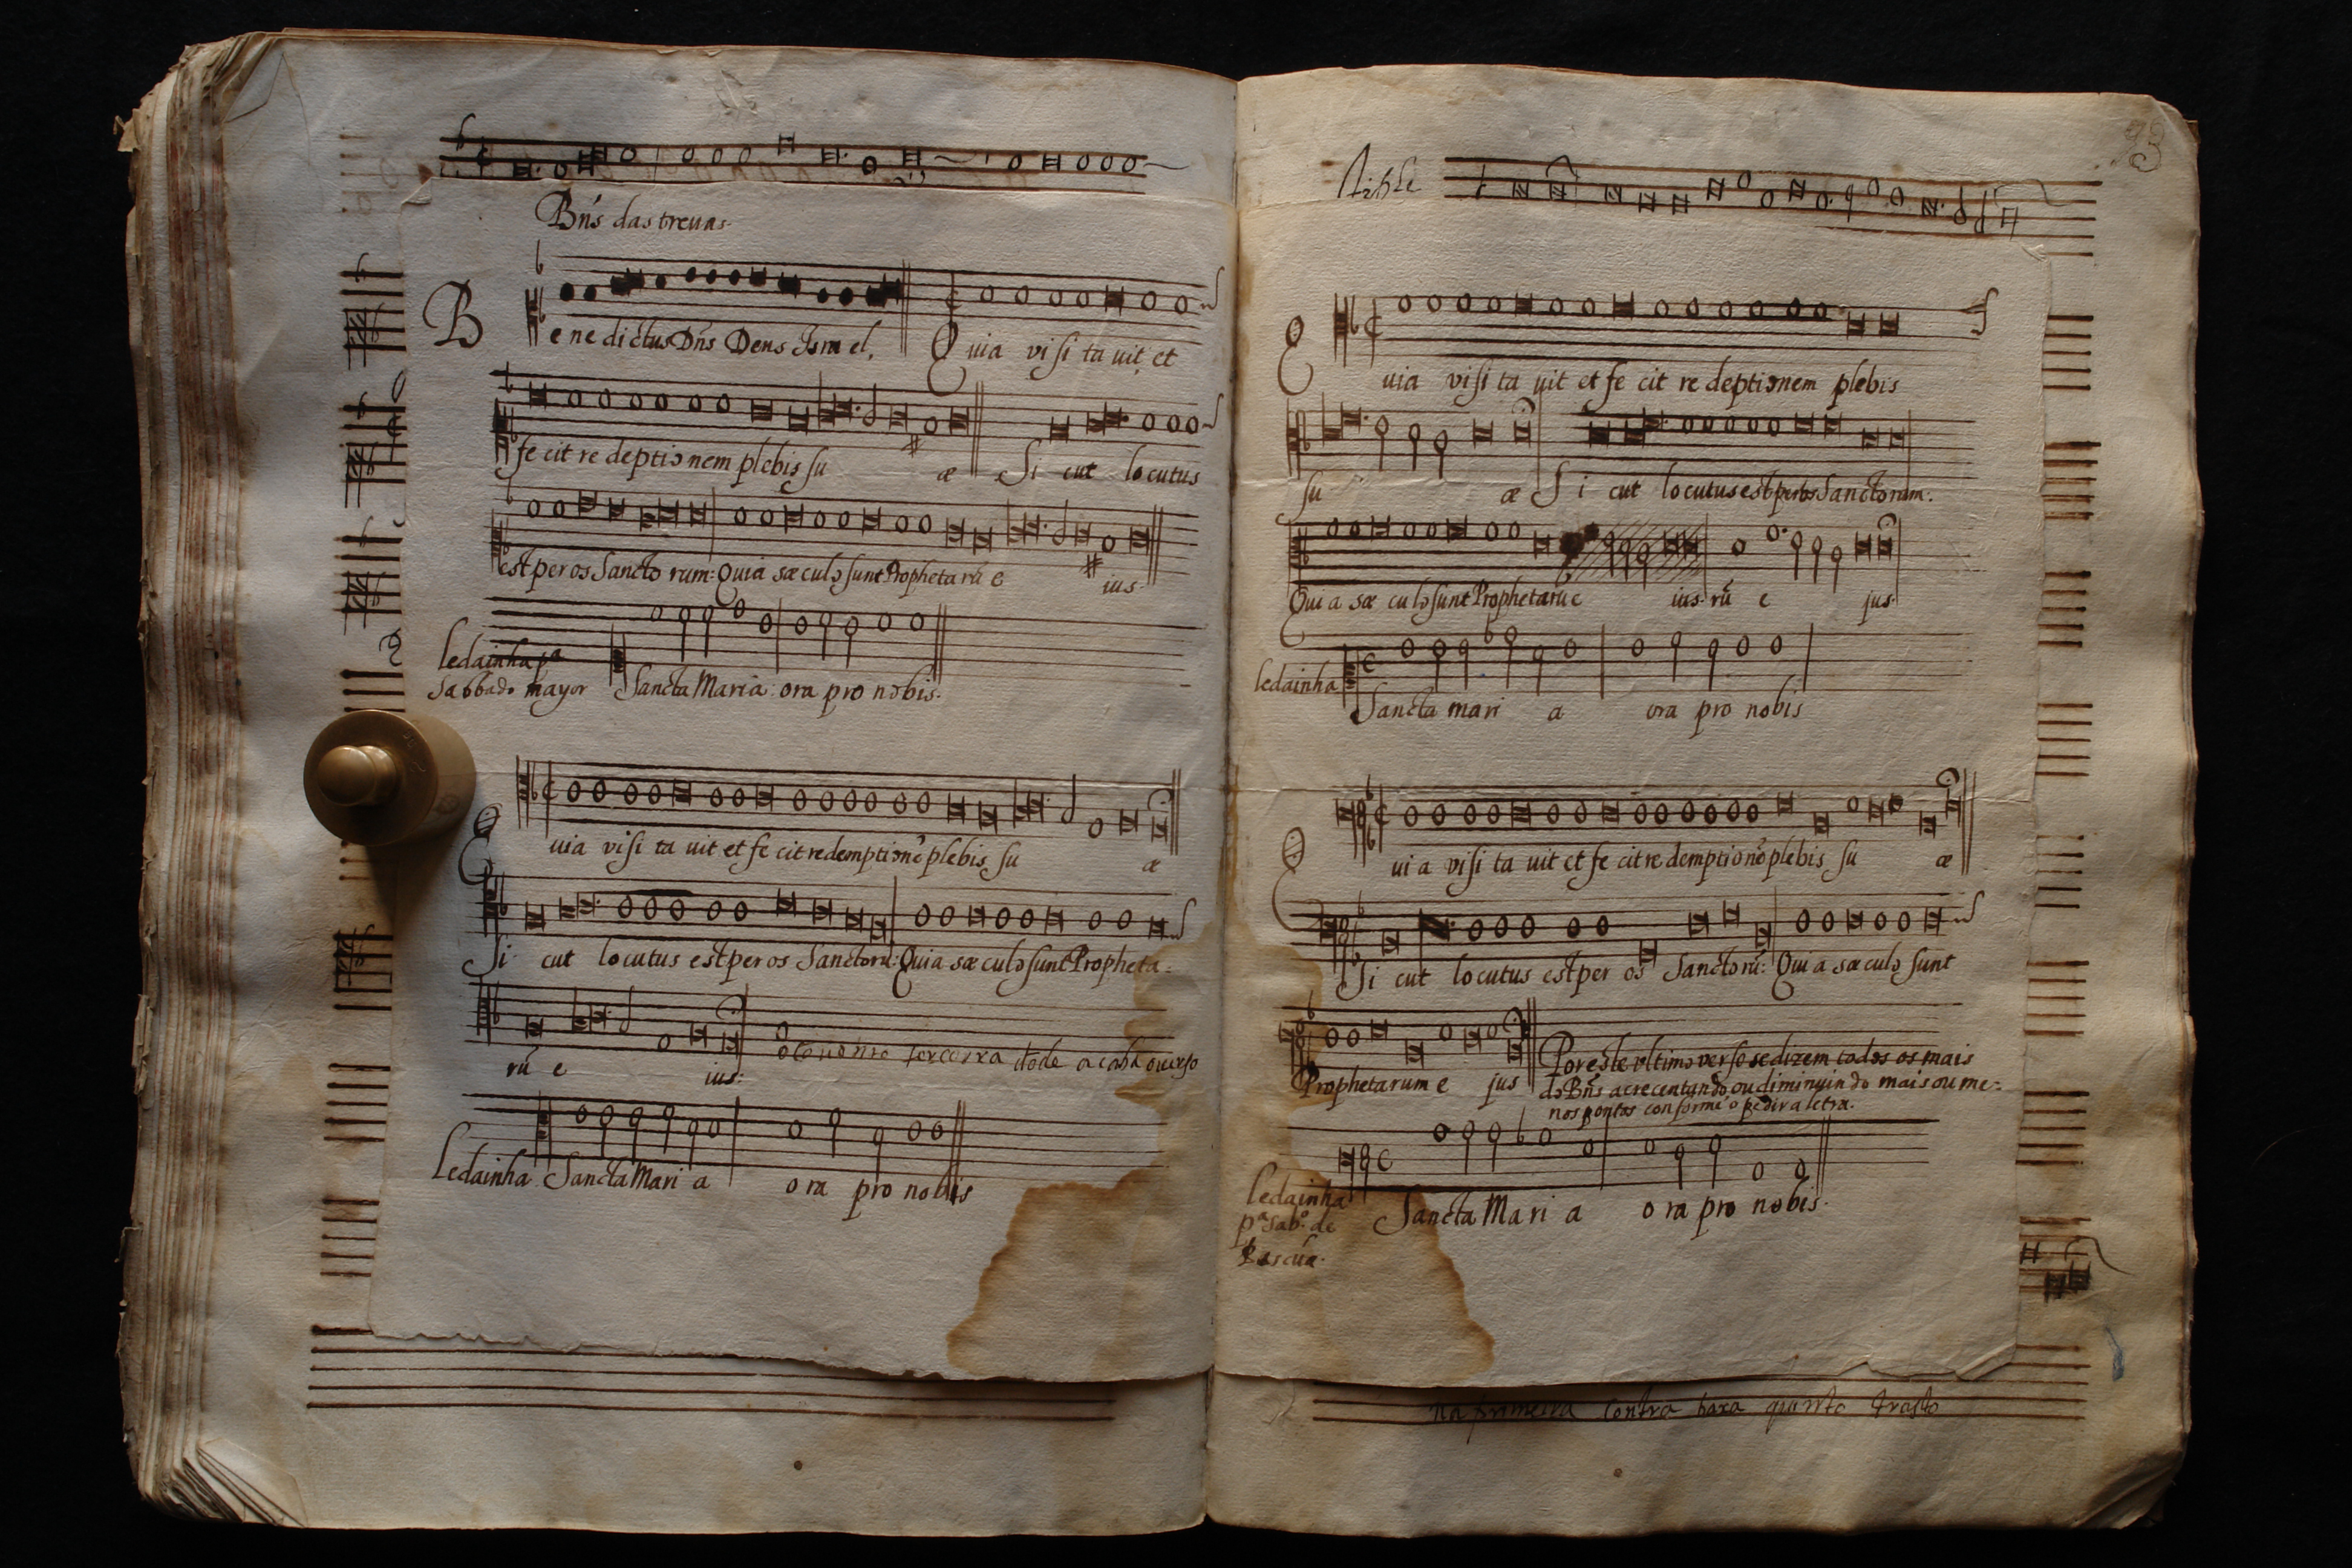 Bñs das trevas.
B e ne dictus Dñs Deus Isra el, Q uia visi ta uit et
fe cit re deptio nem plebis su æ Si cut locutus
est per os Sancto rum: Quia sæculo sunt Prophetarũ e ius.
ledainha pª
Sabbado mayor Sancta Maria: ora pro nobis.
Q uia visi ta uit et fe cit redemptionẽ plebis su æ
Si cut locutus est per os Sanctorũ: Quia sæculo sunt Propheta=
rũ e ius:
tercerra acaba overso
Ledainha Sancta Mari a ora pro nobis
73
Q uia visi ta uit et fe cit re deptionem plebis
su æ S i cut locutus est per os Sanctorum.
Qui a sæ culo sunt Prophetarũ e ius. rũ e jus.
ledainha Sancta mari a ora pro nobis
Q ui a visi ta uit et fe cit re demptionẽ plebis su æ
Si cut locutus est per os Sanctorũ: Qui a sæculo sunt
Prophetarum e jus
Por este ultimo verso se dizem todos os mais
do Bñs acrecentando, ou diminuindo mais ou me=
nos pontos conforme o pedir a letra.
ledainha
pª Sabº. de
Pascua. Sancta Mari a ora pro nobis.
na primeira contra baxa quinto trasto